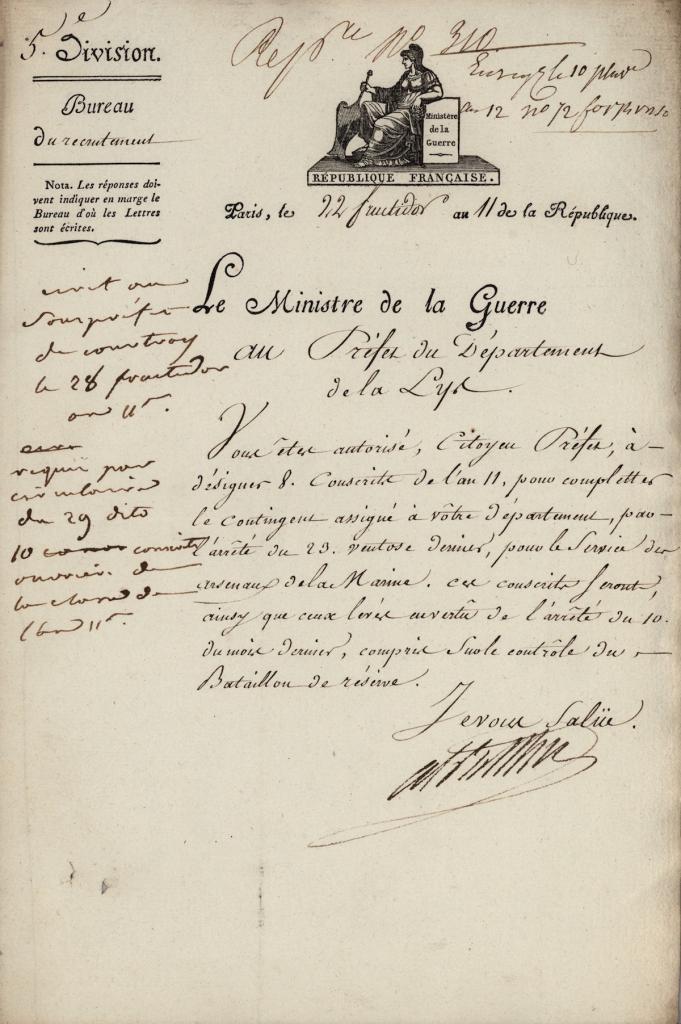 5.e Division.
Bureau
du recrutement
Nota. Les réponses doi-
vent indiquer en marge le
Bureau d'où les Lettres
sont écrites.
Rep.re no 310
le 10 pluv.e
an 12 no 72
Ministère
de la
Guerre
RÉPUBLIQUE FRANÇAISE.
Paris, le 22 fructidor an 11 de la République.
Le Ministre de la Guerre
au Préfet du Département
de la Lys.
Vous êtes autorisé, Citoyen Préfet, à
désigner 8. Conscrits de l'an 11, pour completter
le contingent assigné à vôtre département, par
l'arrêté du 23. ventose dernier, pour le Service des
arsenaux de la Marine. ces conscrits seront,
ainsy que ceux levés en vertu de l'arrêté du 10.
du mois dernier, compris sur le contrôle du
Bataillon de réserve.
Je vous Salüe.
ecrit au
Sousprefet
de courtray
le 28 fructidor
an 11.
requis par
circulaire
du 29 dito
10 conscrits
ouvriers de
la classe de
l'an 11.